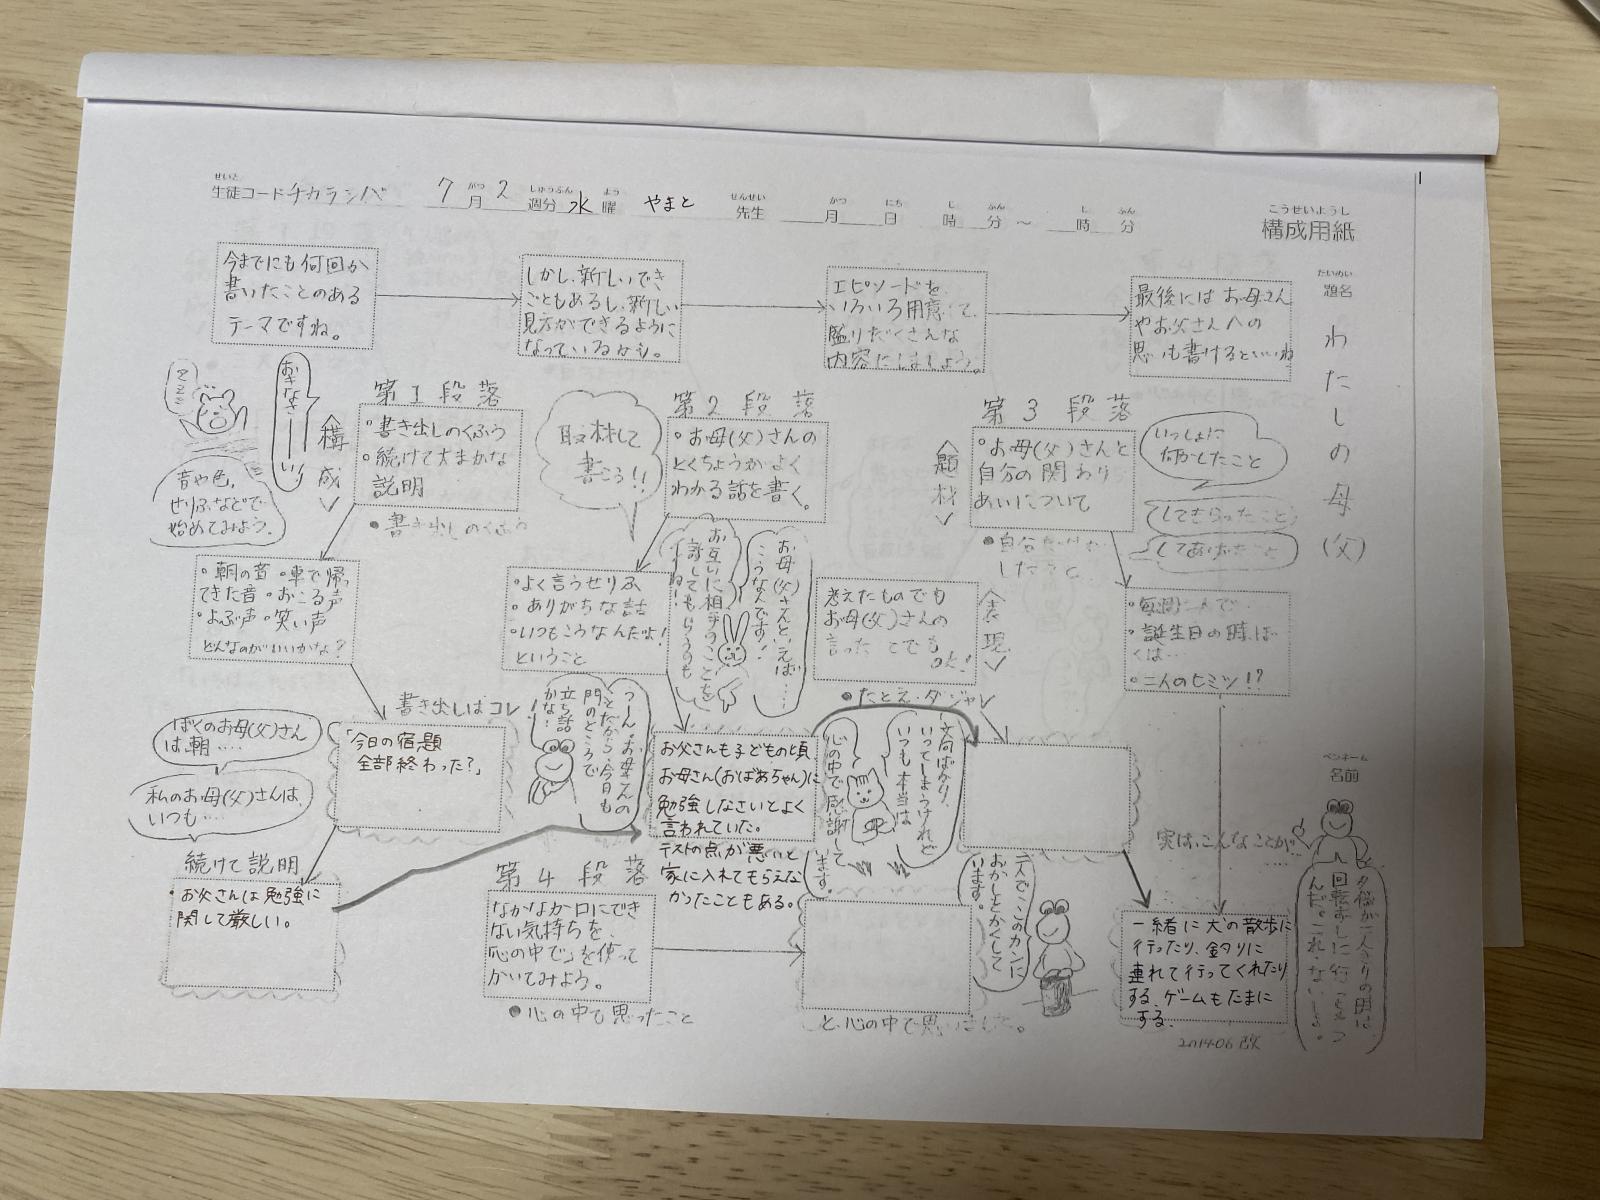 せいと
生徒コード チカラシバ 7月2週分 水曜 やまと 先生 月 日 時 分 〜 時 分
がつ しゅうぶん よう せんせい がつ にち じ ふん じ ふん
こうせいようし
構成用紙
だいめい
題名
わたしの母(父)
ペンネーム
名前
今までにも何回か
書いたことのある
テーマですね。
しかし、新しいでき
ごともあるし、新しい
見方ができるように
なっているかも。
エピソードを、
いろいろ用意して、
盛りだくさんな
内容にしましょう。
最後にはお母さん
やお父さんへの
思いも書けるといいね
おきなさーい!
〈構成〉
音や色、
せりふなどで
始めてみよう。
第1段落
・書き出しのくふう
・続けて大まかな
説明
●書き出しのくふう
・朝の音 ・車で帰っ
てきた音 ・おこる声
・よぶ声 ・笑い声
どんなのがいいかな?
書き出しはコレ!
ぼくのお母(父)さん
は、朝‥‥
私のお母(父)さんは、
いつも‥‥
「今日の宿題
全部終わった?」
続けて説明
・お父さんは勉強に
関して厳しい。
取材して
書こう!!
第2段落
・お母(父)さんの
とくちょうがよく
わかる話を書く。
・よく言うせりふ
・ありがちな話
・いつもこうなんだよ!
ということ
お母(父)さんと言えば‥‥
こうなんです!
お互いに相手のことを
話してもらうのも
いいね!
うーん。お母さんの
ことだから、今日も
門のところで
立ち話
かな‥
お父さんも子どもの頃
お母さん(おばあちゃん)に
勉強しなさいとよく
言われていた。
テストの点が悪いと
家に入れてもらえな
かったこともある。
〈題材〉
第3段落
・お母(父)さんと
自分の関わり
あいについて
いっしょに
何かしたこと
してもらったこと
してあげたこと
したこと
〈表現〉
考えたものでも
お母(父)さんの
言ったことでも
OK!
●たとえ・ダジャレ
・毎週二人で‥
・誕生日の時、ぼ
くは‥‥
・二人のヒミツ!?
文句ばかり
いってしまうけれど
いつも本当は
心の中で感謝して
います。
実は、こんなことが‥
一緒に犬の散歩に
行ったり、釣りに
連れて行ってくれたり
する。ゲームもたまに
する。
第4段落
なかなか口にでき
ない気持ちを、
「心の中で」を使って
かいてみよう。
●心の中で思ったこと
と、心の中で思いました。
二人で、このカンに
おかしをかくして
います。
夕飯が二人きりの時は、
回転ずしに行っちゃう
んだ。これ、ないしょ。
2014.06 改